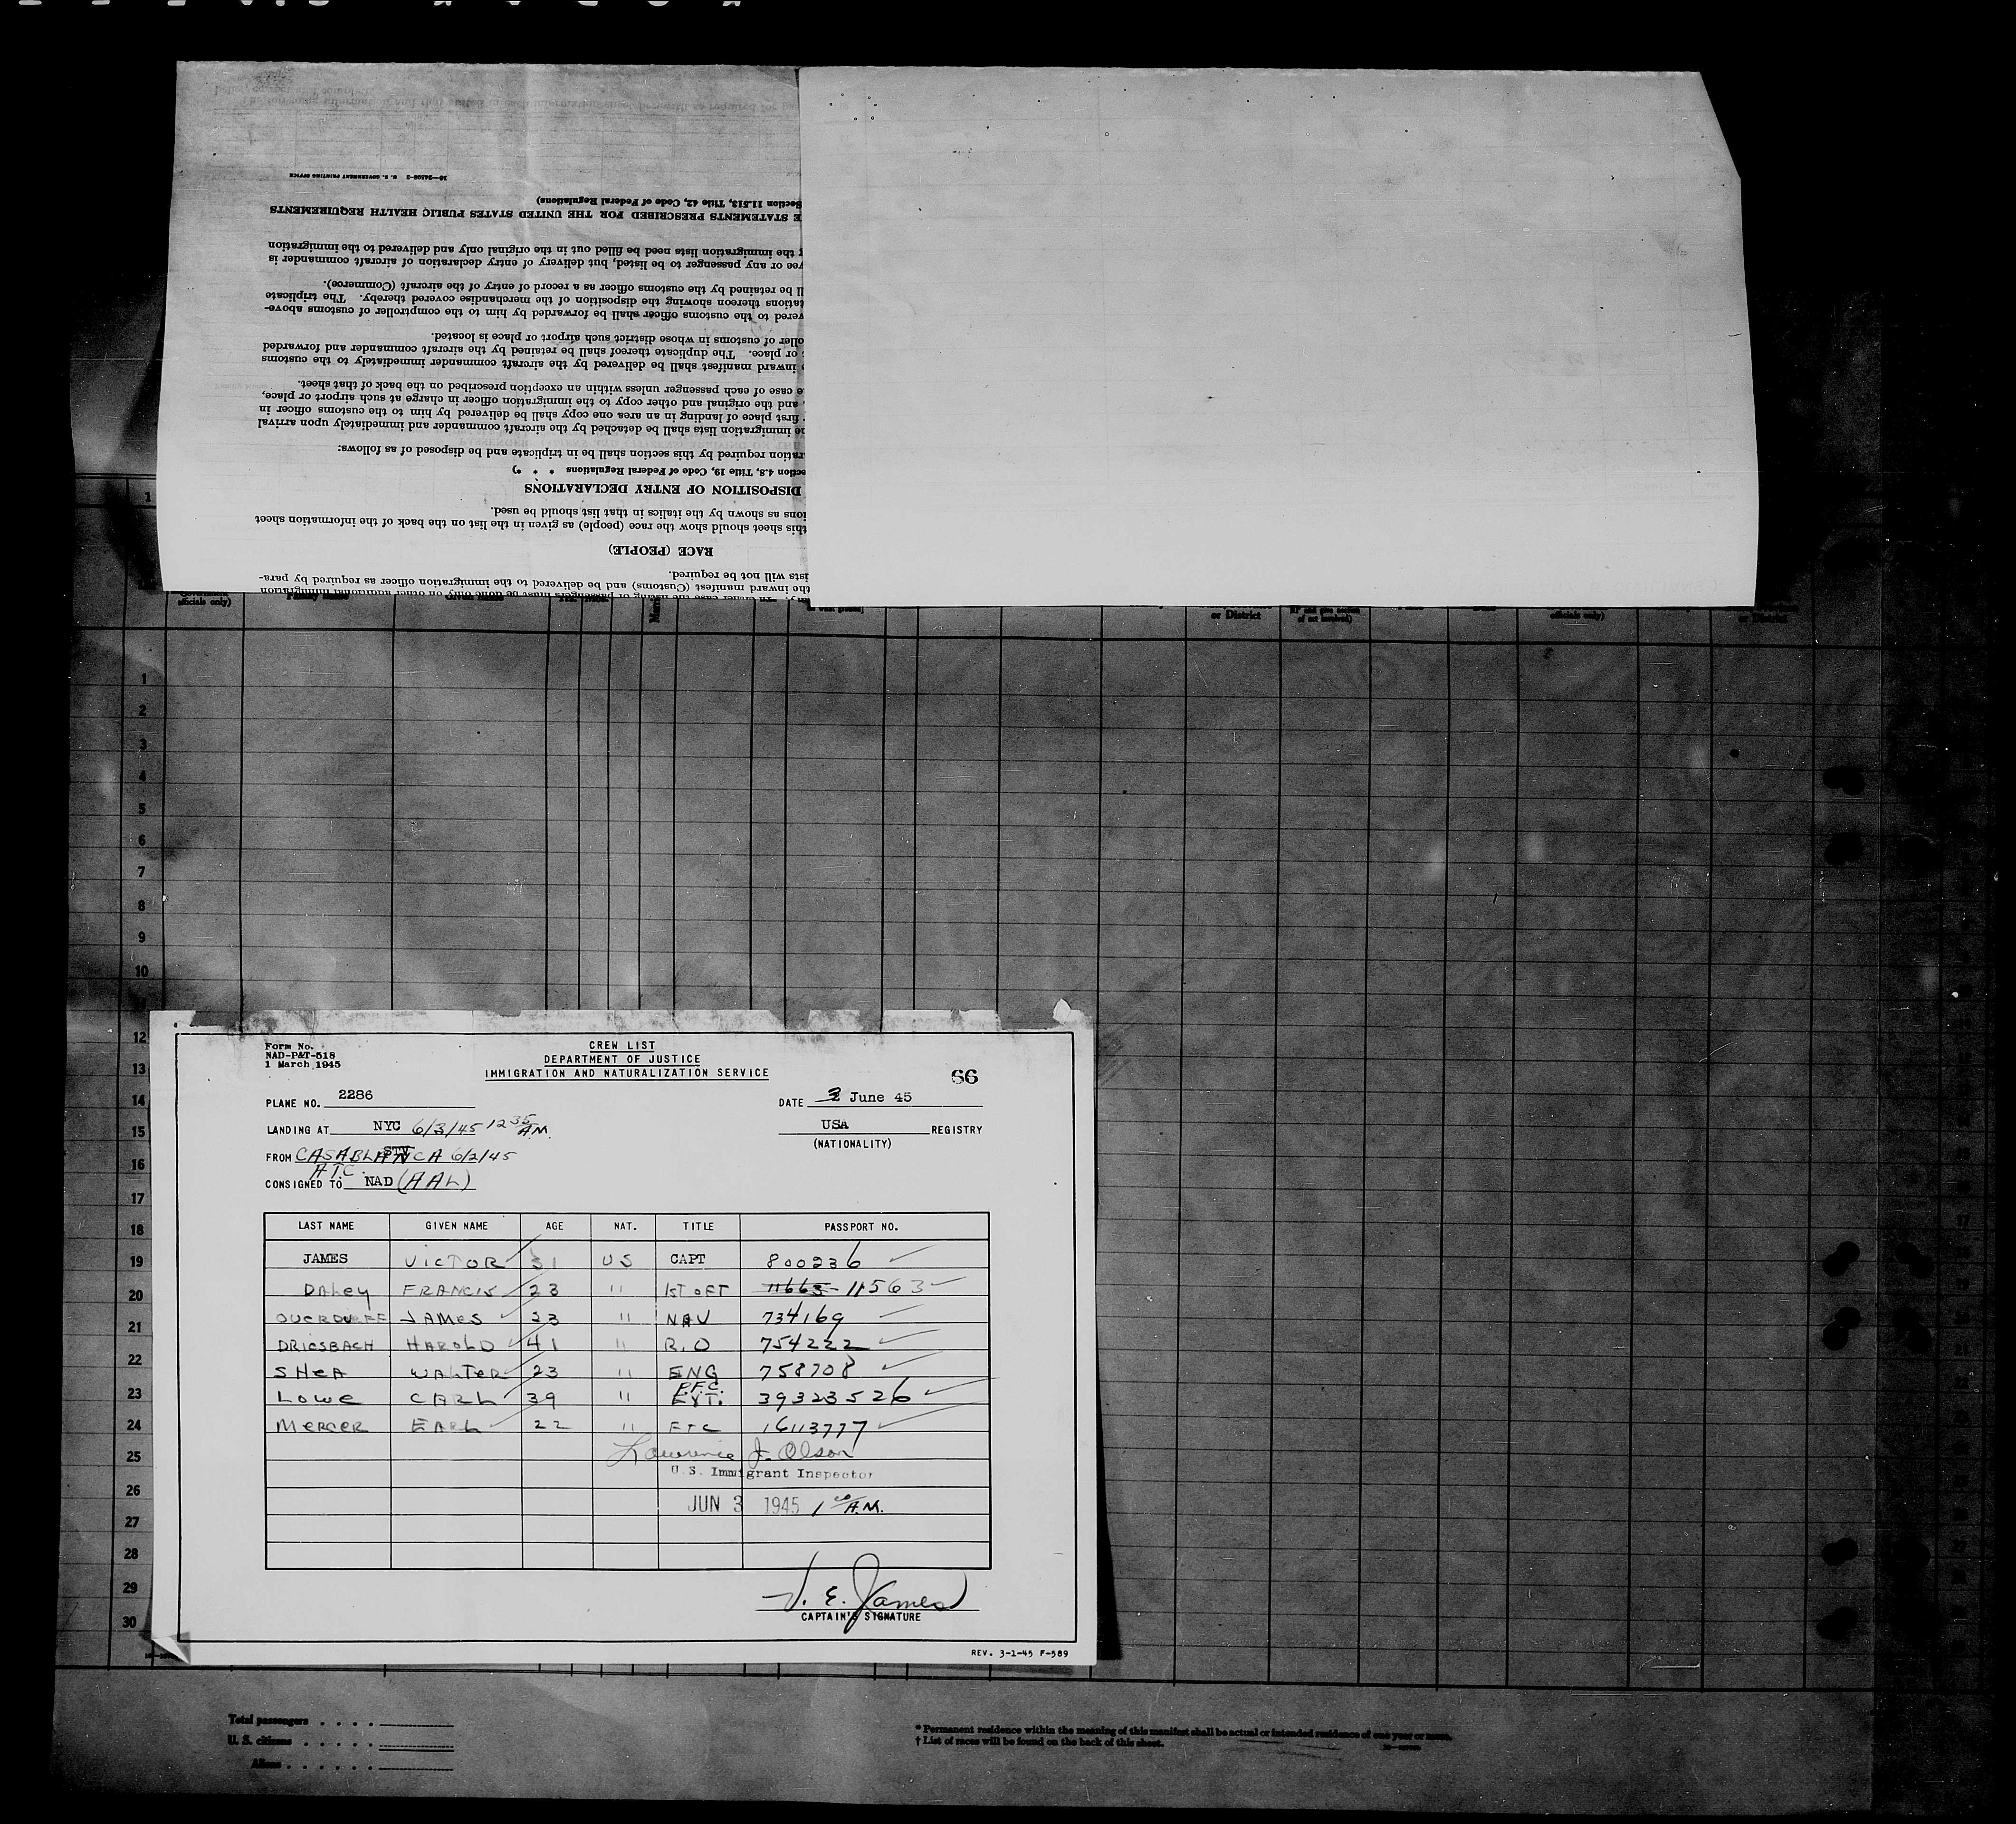 belief, correct and complete.
16—24598-2 U. S. GOVERNMENT PRINTING OFFICE
Section 11.513, Title 42, Code of Federal Regulations)
E STATEMENTS PRESCRIBED FOR THE UNITED STATES PUBLIC HEALTH REQUIREMENTS
the immigration lists need be filled out in the original only and delivered to the immigration
yee or any passenger to be listed, but delivery of entry declaration of aircraft commander is
ll be retained by the customs officer as a record of entry of the aircraft (Commerce).
tations thereon showing the disposition of the merchandise covered thereby. The triplicate
vered to the customs officer shall be forwarded by him to the comptroller of customs above-
oller of customs in whose district such airport or place is located.
or place. The duplicate thereof shall be retained by the aircraft commander and forwarded
inward manifest shall be delivered by the aircraft commander immediately to the customs
e case of each passenger unless within an exception prescribed on the back of that sheet.
and the original and other copy to the immigration officer in charge at such airport or place,
first place of landing in an area one copy shall be delivered by him to the customs officer in
e immigration lists shall be detached by the aircraft commander and immediately upon arrival
ration required by this section shall be in triplicate and be disposed of as follows:
ection 4.8, Title 19, Code of Federal Regulations * * *)
DISPOSITION OF ENTRY DECLARATIONS
ions as shown by the italics in that list should be used.
this sheet should show the race (people) as given in the list on the back of the information sheet
RACE (PEOPLE)
ists will not be required.
the inward manifest (Customs) and be delivered to the immigration officer as required by para-
1
officials only) Family name Given name Yrs. Mos. or District of act involved) officials only) or District
1
2
3
4
5
6
7
8
9
10
12
13
14
15
16
17
18
19
20
21
22
23
24
25
26
27
28
29
30
Form No.
NAD-P&T-518
1 March 1945
CREW LIST
DEPARTMENT OF JUSTICE
IMMIGRATION AND NATURALIZATION SERVICE
66
PLANE NO. 2286 DATE 3 June 45
LANDING AT NYC 6/3/45 12 35 A.M. USA REGISTRY
(NATIONALITY)
FROM CASABLANCA 6/2/45
A.T.C.
CONSIGNED TO NAD (AAL)
LAST NAME GIVEN NAME AGE NAT. TITLE PASSPORT NO.
JAMES VICTOR 31 US CAPT 800236
DALEY FRANCIS 23 " 1ST OFT 11665 11563
JAMES 23 " NAV 734169
DRIESBACH HAROLD 41 " R.O 754222
SHEA WALTER 23 " ENG 758708
LOWE CARL 39 " P.F.C. 39323526
MERCER EARL 22 " FTC 16113777
Lawrence J. Olson
U.S. Immigrant Inspector
JUN 3 1945 1 00 A.M.
V. E. James
CAPTAIN'S SIGNATURE
REV. 3-1-45 F-589
Total passengers . . . .
U. S. citizens . . . . .
Aliens . . . . . .
* Permanent residence within the meaning of this manifest shall be actual or intended residence of one year or more.
† List of races will be found on the back of this sheet.